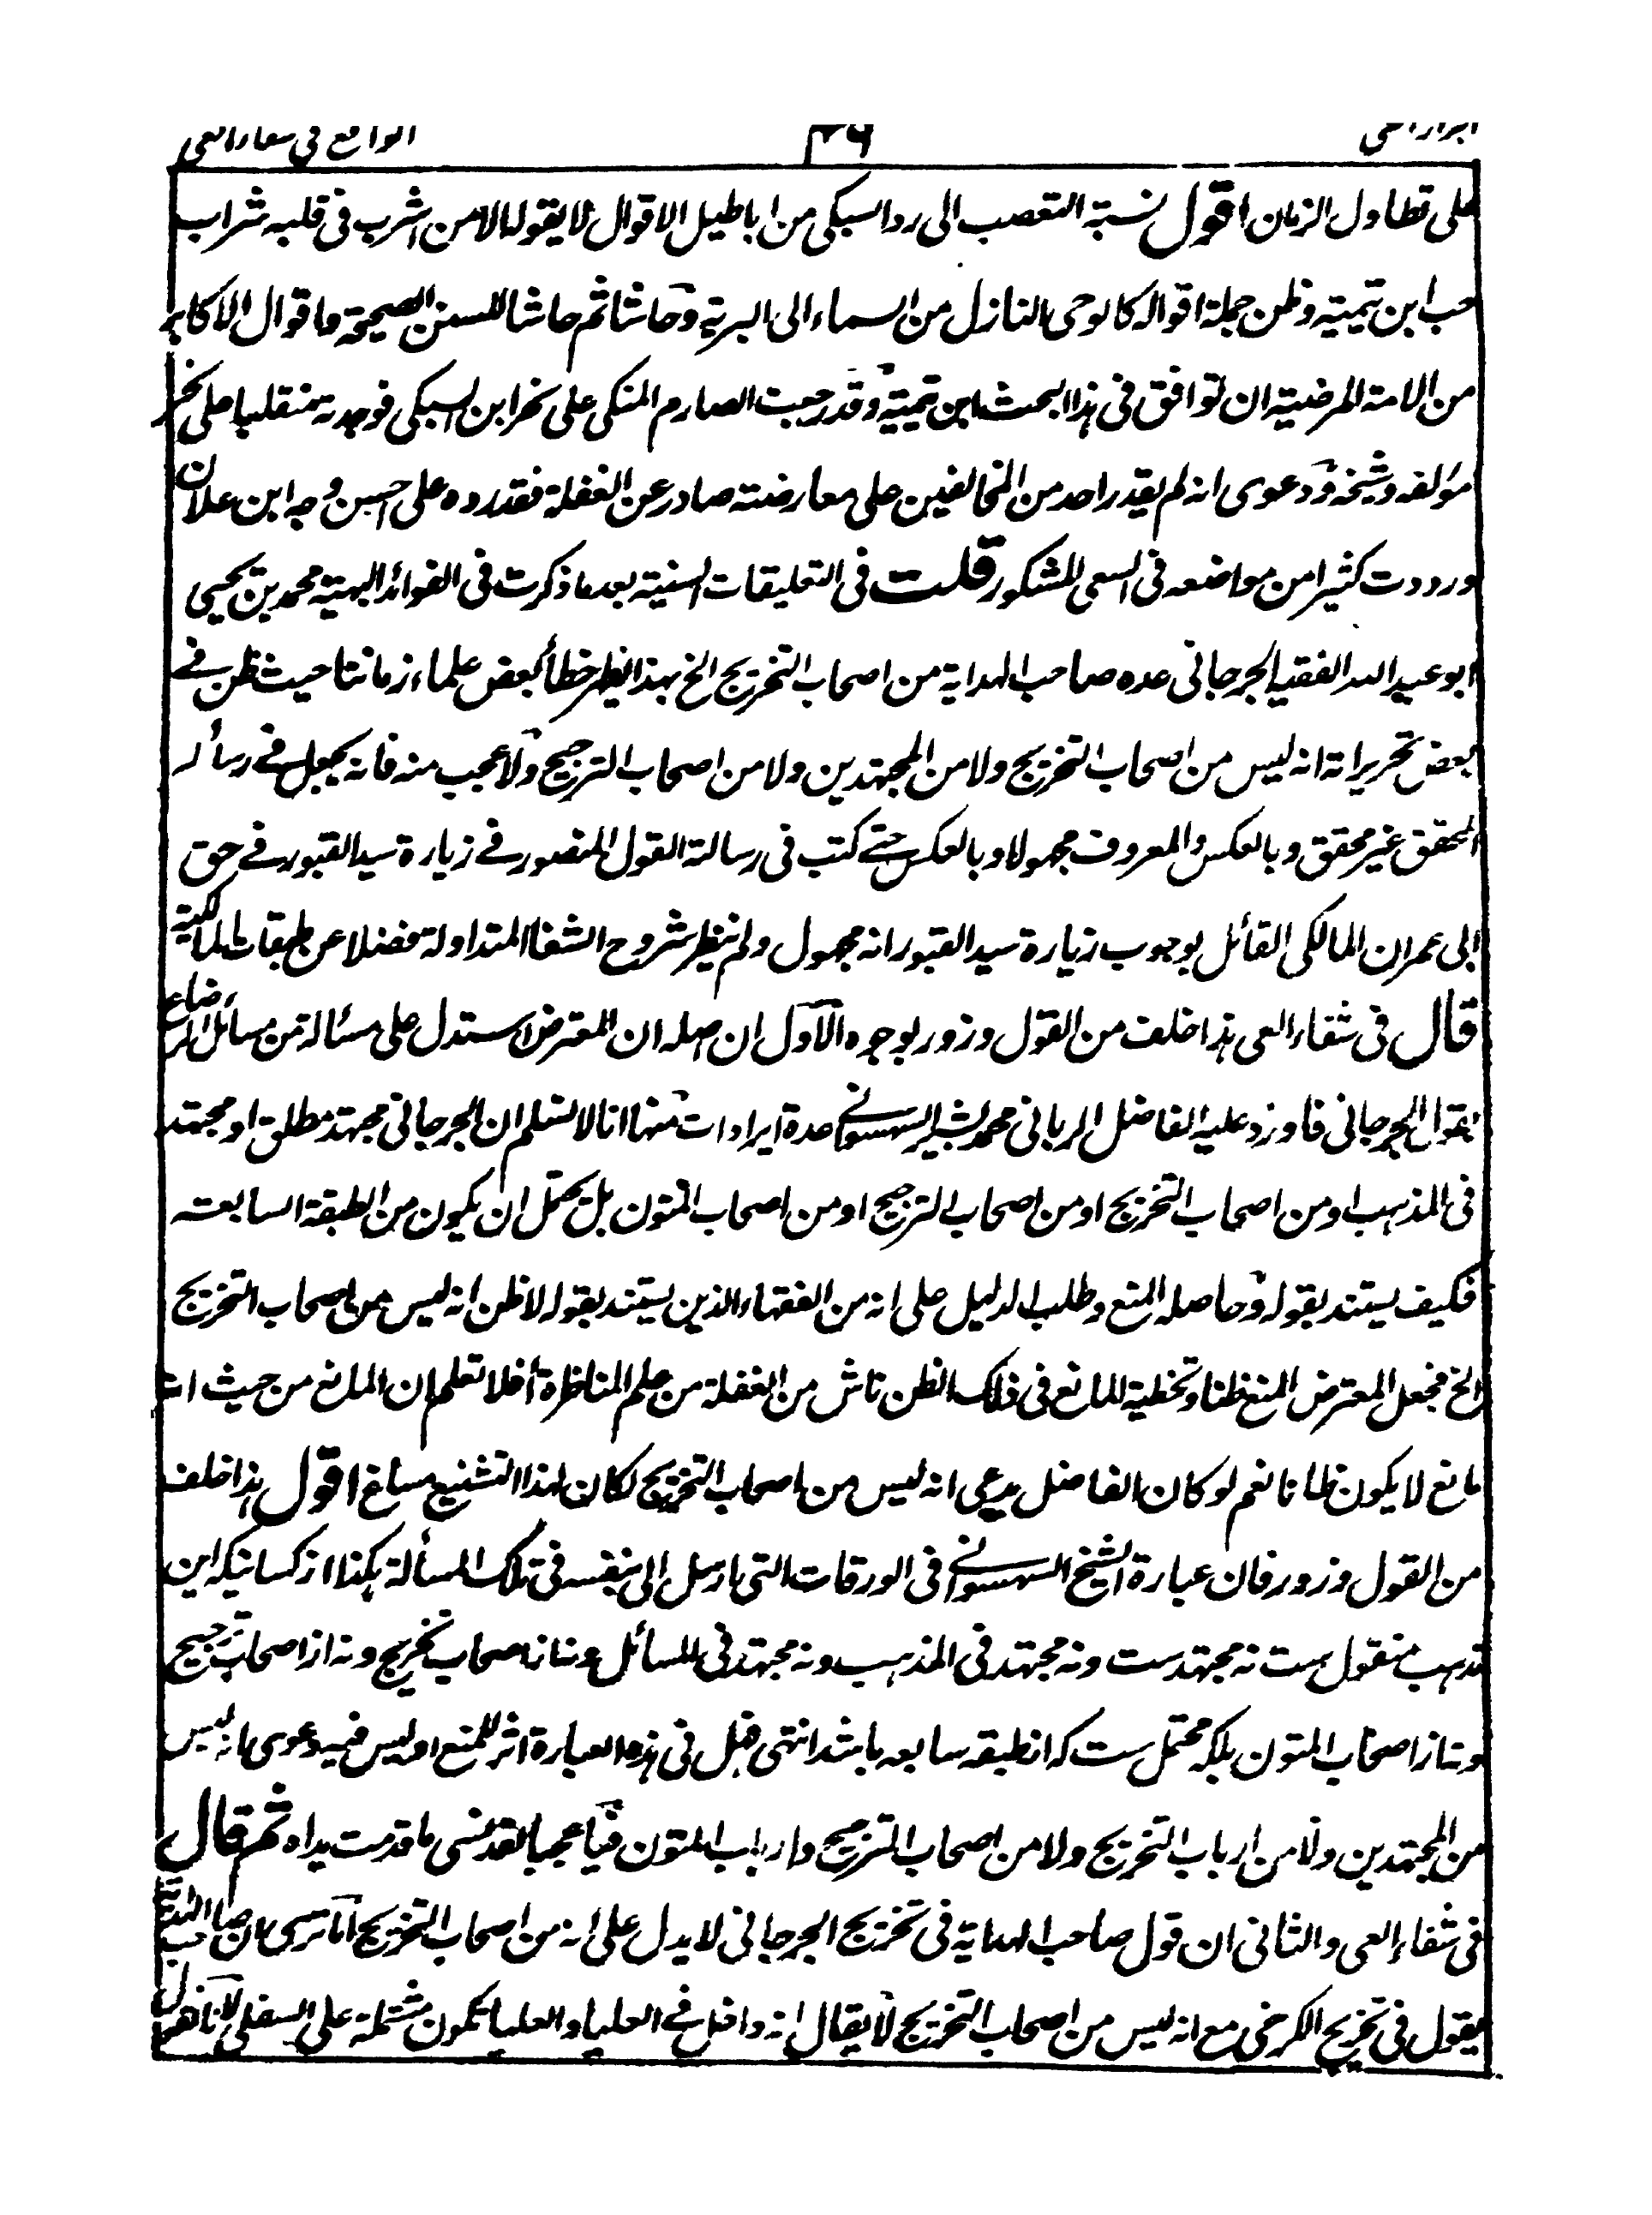 ابراز الغى ٤٦ الواقع في شفاء العى
على تطاول الزمان اقول نسبة التعصب الى رد السبكى من اباطيل الاقوال لا يقولها الا من اشرب فى قلبه شراب
حب ابن تيمية وظن جملة اقواله كالوحى النازل من السماء الى البرية وحاشا ثم حاشا للسنن الصحيحة واقوال الاكابر
من الامة المرضية ان توافق فى هذا البحث ابن تيمية وقد رجعت الصارم المنكى على نحر ابن السبكى فوجدته منقلبا على نحر
مؤلفه وشيخه ودعوى انه لم يقدر احد من المخالفين على معارضته صادر عن الغفلة فقد رده على احسن وجه ابن علان
ورددت كثيرا من مواضعه فى السعى المشكور قلت فى التعليقات السنية بعد ما ذكرت فى الفوائد البهية محمد بن يحيى
ابو عبد الله الفقيه الجرجانى عده صاحب الهداية من اصحاب التخريج الخ بهذا يظهر خطأ بعض علماء زماننا حيث ظن فے
بعض تحريراته انه ليس من اصحاب التخريج ولا من المجتهدين ولا من اصحاب الترجيح ولا عجب منه فانه يجعل فے رسائله
المحقق غير محقق وبالعكس والمعروف مجهولا وبالعكس حتے كتب فى رسالته القول المنصور فے زيارة سيد القبور فے حق
ابى عمران المالكى القائل بوجوب زيارة سيد القبور انه مجهول ولم ينظر شروح الشفا المتداولة فضلا عن طبقات المالكية
قال فى شفاء العى هذا خلف من القول وزور بوجوه الاول ان اصله ان المعترض استدل على مسألة من مسائل الرضاع
بقول الجرجانى فاورد عليه الفاضل الربانى محمد بشير السهسوانے عدة ايرادات منها انا لا نسلم ان الجرجانى مجتهد مطلق او مجتهد
فى المذهب او من اصحاب التخريج او من اصحاب الترجيح او من اصحاب المتون بل يحتمل ان يكون من الطبقة السابعة
فكيف يستند بقوله وحاصله المنع وطلب الدليل على انه من الفقهاء الذين يستند بقولهم لا ظن انه ليس من اصحاب التخريج
الخ فجعل المعترض المنع ظنا وتخطية للمانع فى ذلك الظن ناش من الغفلة من علم المناظرة أفلا تعلم ان المانع من حيث انه
مانع لا يكون ظانا نعم لو كان الفاضل يدعى انه ليس من اصحاب التخريج لكان لهذا التشنيع مساغ اقول هذا خلف
من القول وزور فان عبارة الشيخ السهسوانے فى الورقات التى ارسل الى بنفسه فى تلك المسألة هكذا از كسانيكه اين
مذهب منقول ست نه مجتهدست ونه مجتهد فى المذهب ونه مجتهد فى المسائل ونه از اصحاب تخريج ونه از اصحاب ترجيح
ونه از اصحاب المتون بلكه محتمل ست كه از طبقه سابعه باشد انتهى فهل فى هذه العبارة اثر للمنع اوليس فيه دعوى انه ليس
من المجتهدين ولا من ارباب التخريج ولا من اصحاب الترجيح وارباب المتون فيا عجبا لقد نسى ما قدمت يداه ثم قال
فى شفاء العى والثانى ان قول صاحب الهداية فى تخريج الجرجانى لا يدل على انه من اصحاب التخريج أما ترى ان صاحب الهداية
يقول فى تخريج الكرخى مع انه ليس من اصحاب التخريج لا يقال انه داخل فے العليا والعليا تكون مشتملة على السفلى لانا نقول